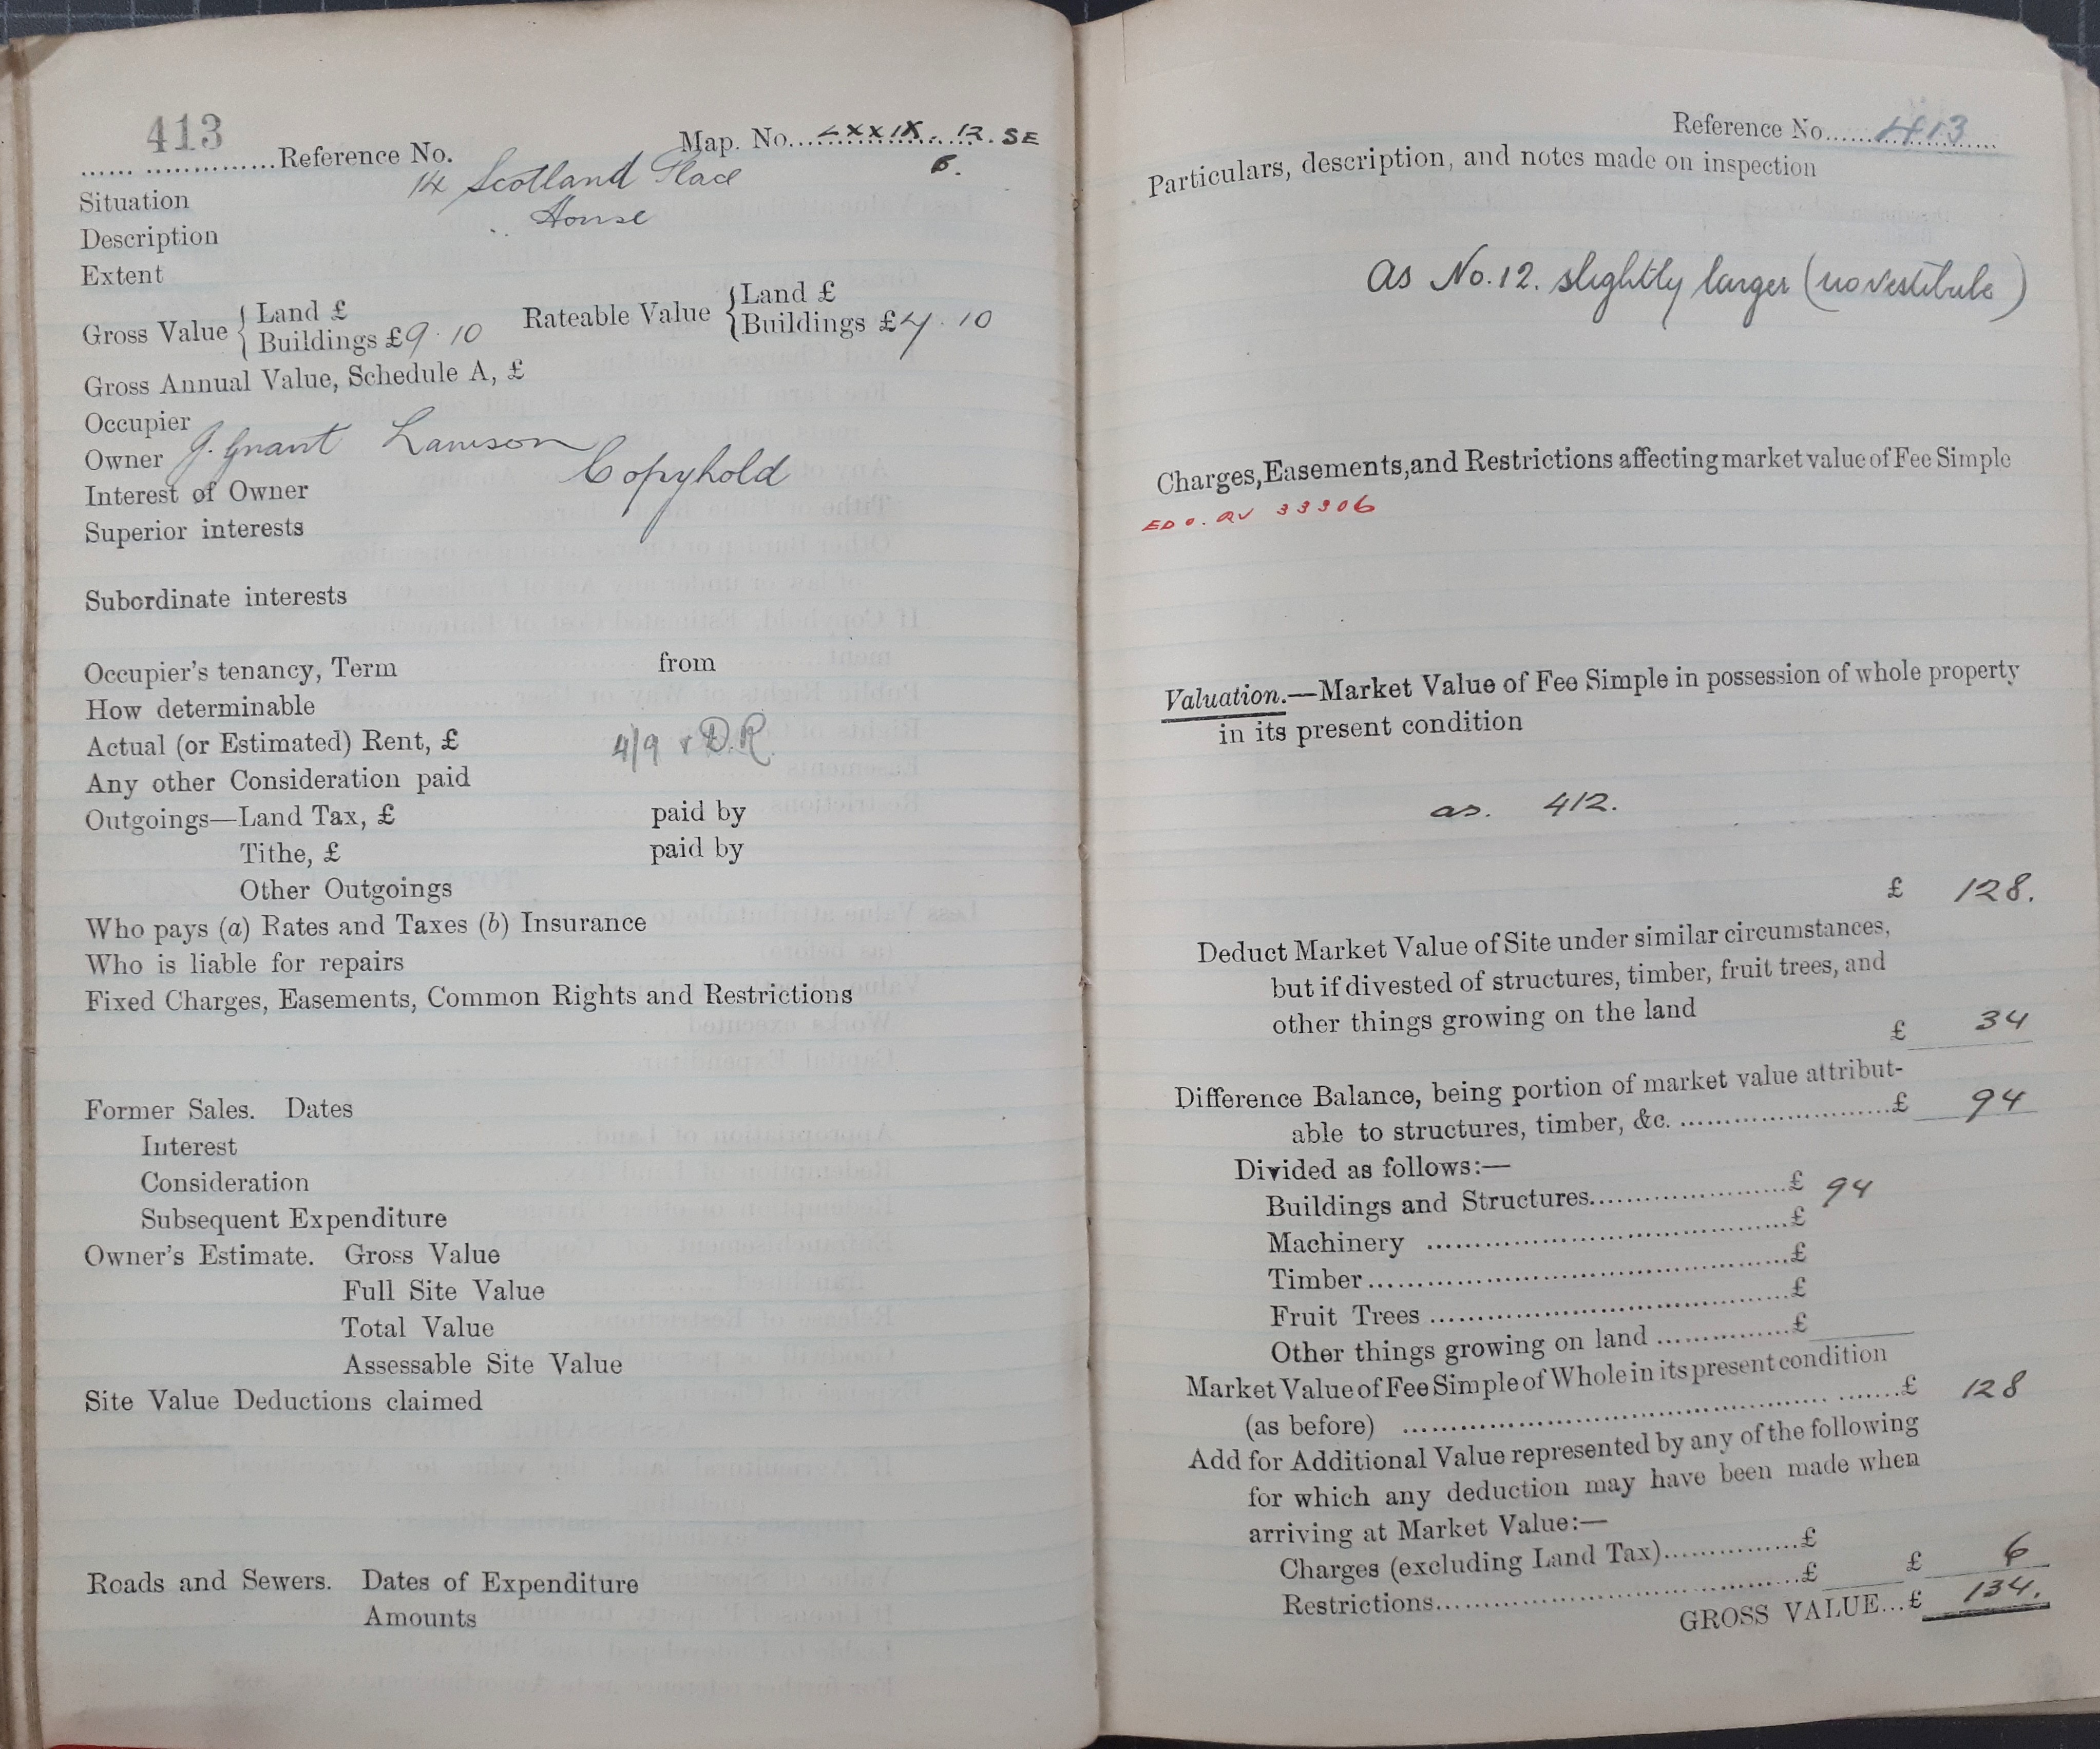 413
...... ..............Reference No. Map. No. LXXIX. 12. SE
6.
Situation 14 Scotland Place
Description House
Extent
Gross Value { Land £
Buildings £9 . 10
Rateable Value { Land £
Buildings £7 . 10
Gross Annual Value, Schedule A, £
Occupier
Owner J. Grant Lawson
Interest of Owner Copyhold
Superior interests
Subordinate interests
Occupier's tenancy, Term from
How determinable
Actual (or Estimated) Rent, £ 4/9 + D.R.
Any other Consideration paid
Outgoings—Land Tax, £ paid by
Tithe, £ paid by
Other Outgoings
Who pays (a) Rates and Taxes (b) Insurance
Who is liable for repairs
Fixed Charges, Easements, Common Rights and Restrictions
Former Sales. Dates
Interest
Consideration
Subsequent Expenditure
Owner's Estimate. Gross Value
Full Site Value
Total Value
Assessable Site Value
Site Value Deductions claimed
Roads and Sewers. Dates of Expenditure
Amounts
Reference No. 413
Particulars, description, and notes made on inspection
As No. 12. slightly larger (no vestibule)
Charges, Easements, and Restrictions affecting market value of Fee Simple
33306
Valuation.—Market Value of Fee Simple in possession of whole property
in its present condition
as. 412.
£ 128.
Deduct Market Value of Site under similar circumstances,
but if divested of structures, timber, fruit trees, and
other things growing on the land £ 34
Difference Balance, being portion of market value attribut-
able to structures, timber, &c. £ 94
Divided as follows:—
Buildings and Structures £ 94
Machinery £
Timber £
Fruit Trees £
Other things growing on land £
Market Value of Fee Simple of Whole in its present condition
(as before) £ 128
Add for Additional Value represented by any of the following
for which any deduction may have been made when
arriving at Market Value:—
Charges (excluding Land Tax) £
Restrictions £ £ 6
GROSS VALUE...£ 134.